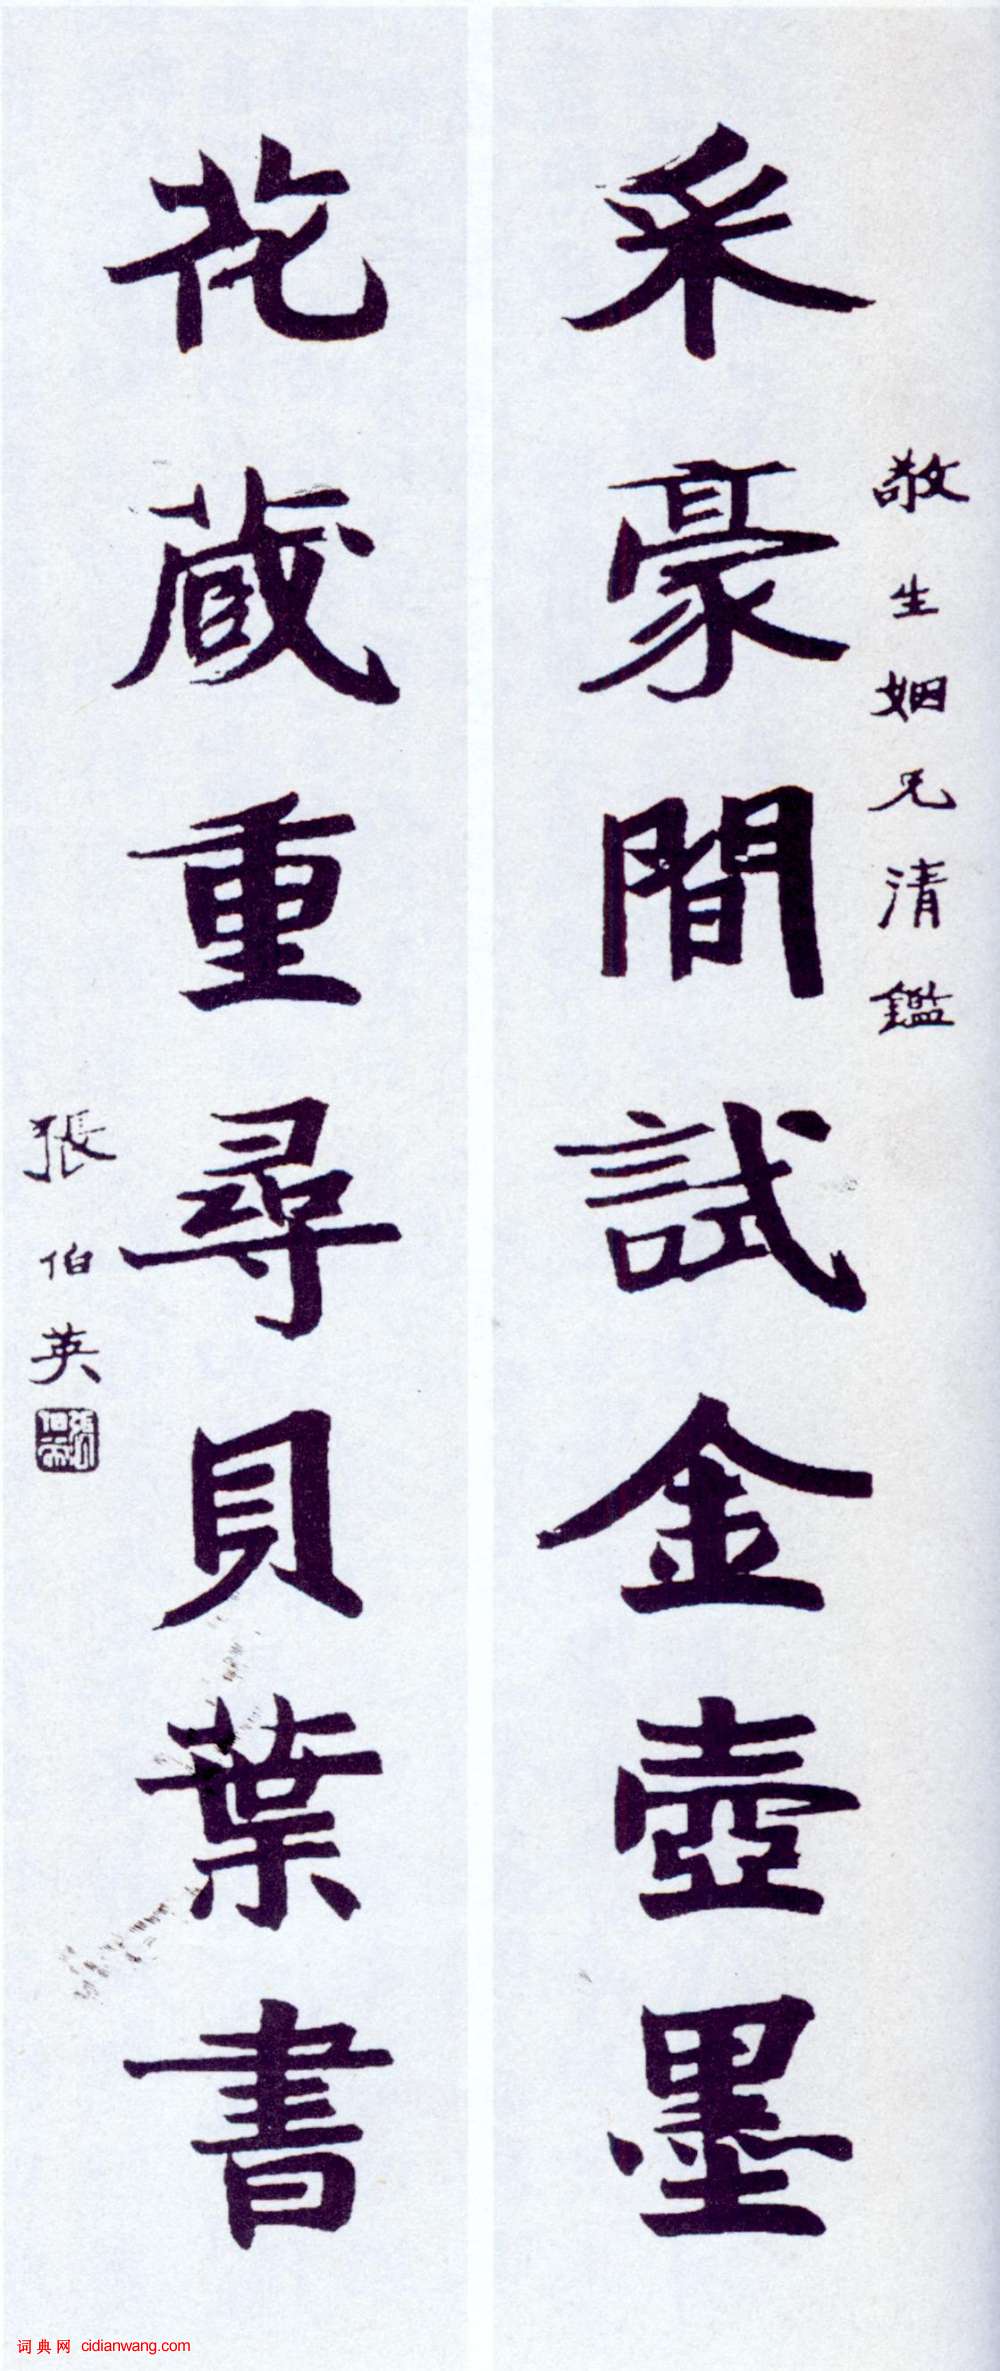 敬生姻兄清鑑
采豪閒試金壺墨
花蔵重尋貝葉書
張伯英
词典网 cidianwang.com